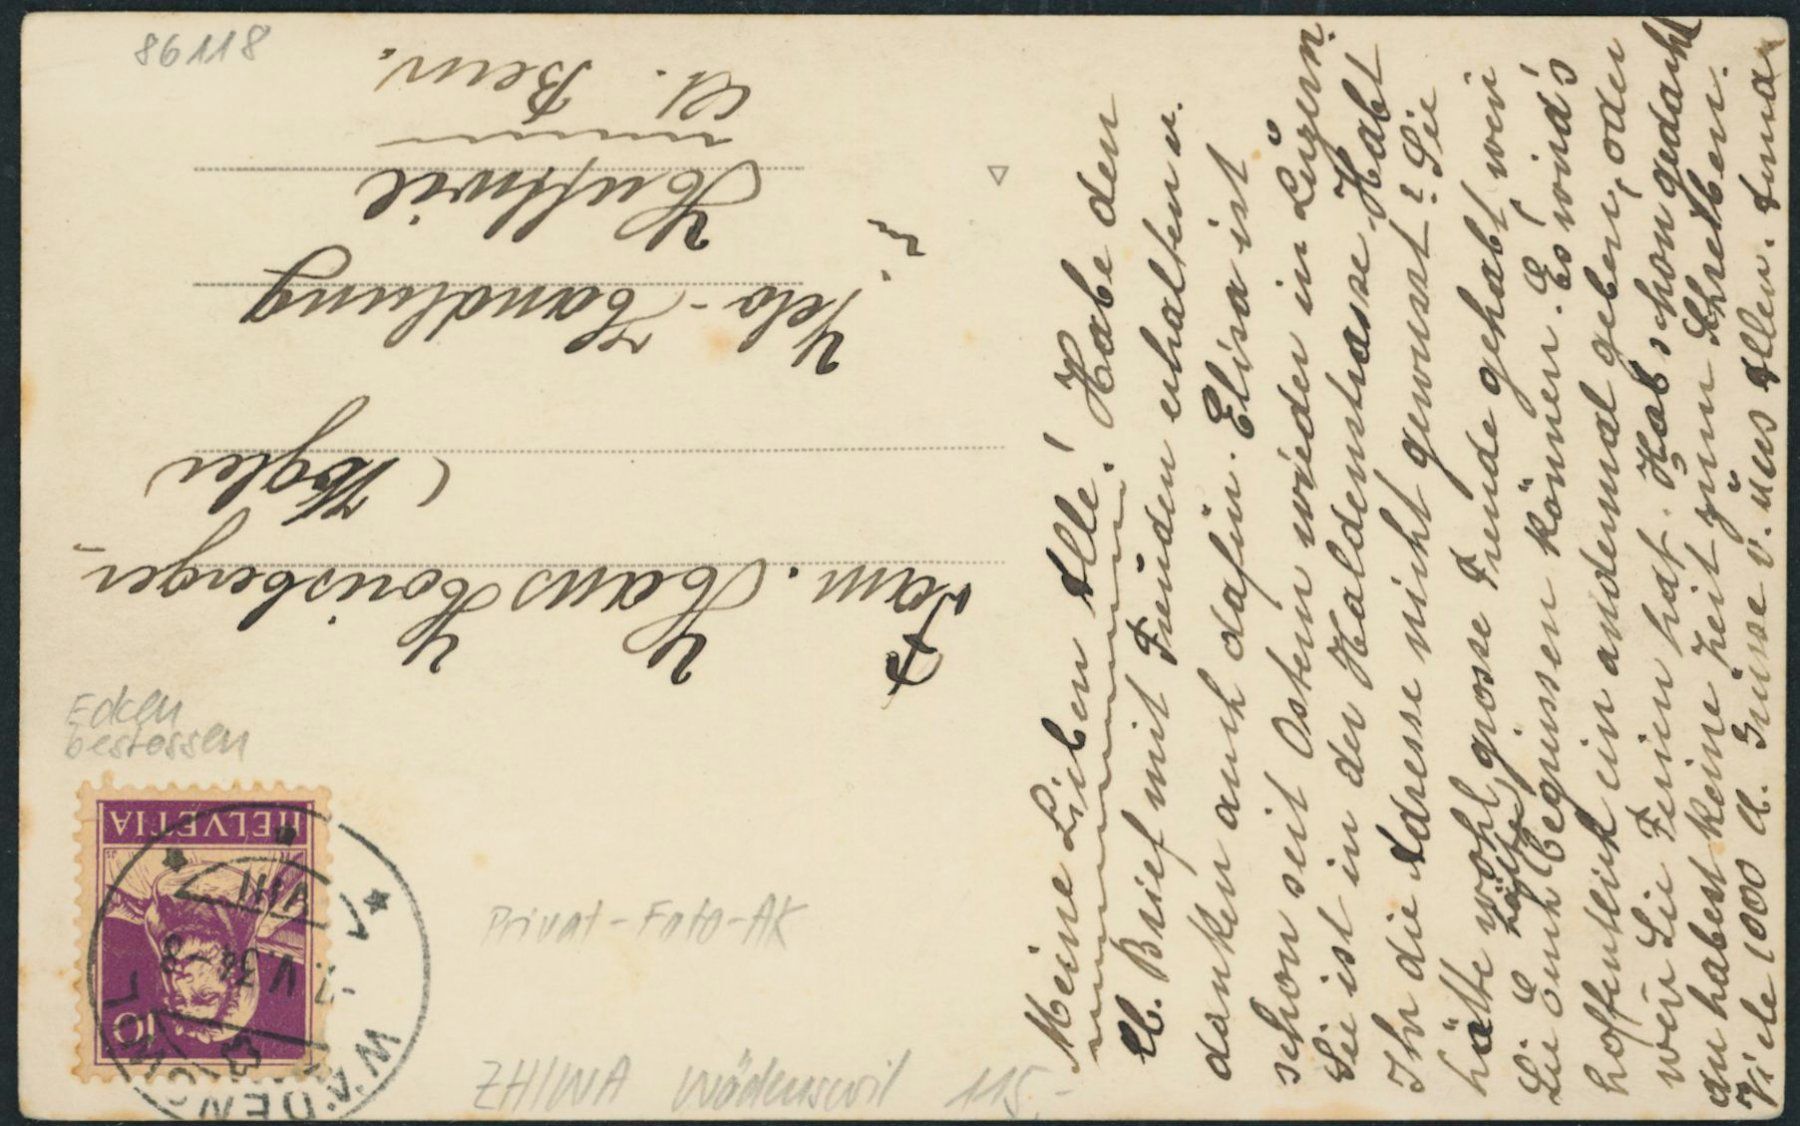 86118
Fam. Hans Horisberger
Velo-Handlung
z.
Huttwil
Kt. Bern.
Ecken
bestossen
HELVETIA
10
WÄDENSWIL
Privat-Foto-AK
ZH/WA Wädenswil 115.-
Meine Lieben Alle! Habe den
lb. Brief mit Freuden erhalten u.
danken auch dafür. Elisa ist
schon seit Ostern wieder in Luzern.
Sie ist in der Haldenstrasse. Habt
Ihr die Adresse nicht gewusst? Sie
hätte wohl grosse Freude gehabt, wen
Sie Euch hätte begrüssen können. Es wird's
hoffentlich ein andermal geben, oder
wen Sie Ferien hat. Hab schon gedacht
du habest keine Zeit zum Schreiben.
Viele 1000 Grüsse v. uns Allen.